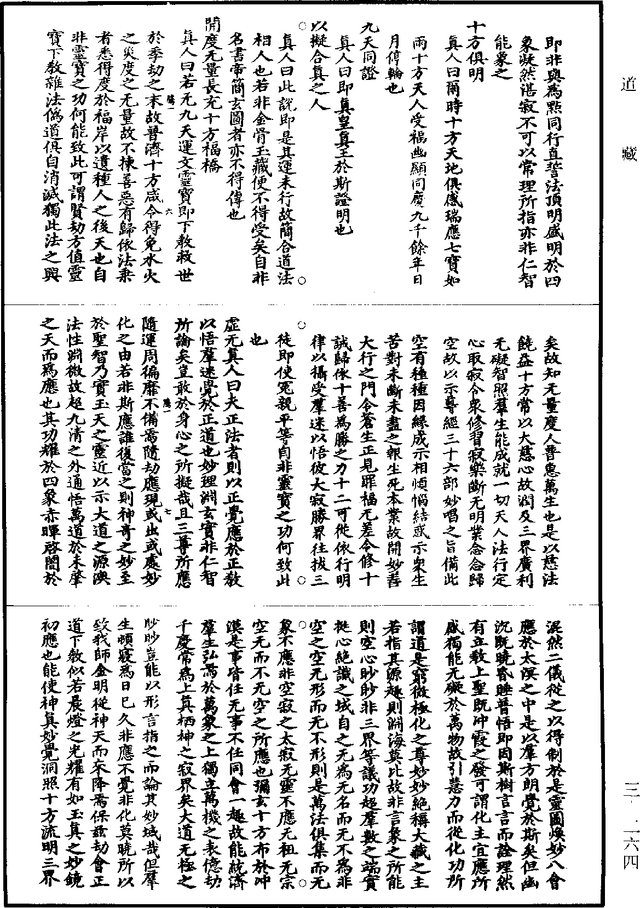 道藏
三‧二六四
即非與為點同行直誓法頂明盛明於四
象凝然湛寂不可以常理所指亦非仁智
能象之
十方俱明
真人曰爾時十方天地俱感瑞應七寶如
雨十方天人受福幽顯同慶九千餘年日
月停輪也
九天同證
真人曰即真皇真王於斯證明也
以擬合真之人
真人曰此說即是其運未行故簡合道法
相人也若非金骨玉藏便不得受矣自非
名書帝簡玄圖者亦不得傳也
開度无量長充十方福橋
真人曰若无九天運文靈寶即下教救世
於季劫之末故普濟十方咸令得免水火
之災度之无量故不揀善惡有歸依法乘
者悉得度於福岸以遺種人之後天也自
非靈寶之功何能致此可謂賢劫方值靈
寶下教雜法偽道俱自消滅獨此法之興
矣故知无量度人普惠萬生也是以慈法
饒益十方常以大慈心故潤及三界廣利
无礙智照羣生能成就一切天人法行定
心取寂令衆修習寂樂斷无明業念念歸
空故以示尊經三十六部妙唱之旨備此
空有種種因緣成示相煩惱結或示衆生
苦對未斷未盡之報生死本業故開妙善
大行之門令蒼生正見罪福无差令修十
誠歸依十善為勝之力十二可從依行明
律以攝受羣迷以悟彼大寂勝界往拔三
徒即使冤親平等自非靈寶之功何致此
也
虛无真人曰夫正法者則以正覺應於正教
以悟羣迷覺於正道也妙理淵玄實非仁智
所論矣豈敢於身心之所擬哉且三尊所應
隨運周徧靡不備焉隨劫應現或出或處妙
化之由若非斯應誰復當之則神奇之妙至
於聖智乃寶玉天之靈近以示大道之源渙
法性淵微故超九清之外通悟萬道於未肇
之天而為應也其功耀於四象赤暉啓闇於
混然二儀從之以得制於是靈圖煥妙八會
應於太漠之中是以羣方朗覺於斯矣但幽
沉既曉昏睡普悟即因斯樹言言而詮理然
有立教上聖既沖霞之發可謂化主宜應所
感獨能无礙於萬物故引慈力而從化功所
謂道是窮微極化之尊妙妙絕稱大藏之主
若指其源趣則淵海莫比故非言象之所能
則空心眇眇非三界等議功超羣數之端實
挺心絕識之域自之无為无名而无不為非
空之空无形而无不形則是萬法俱集而无
象不應非空寂之太寂无靈不應无祖无宗
空无而不无空之所應也彌玄十方布於沖
漠是事皆任无事不任同會一趣故能統濟
羣生弘焉於萬象之上獨立萬機之表億劫
千慶常為上真栖神之寂界矣大道无極之
眇眇豈能以形言指之而論其妙域哉但羣
生頓寢為日已久非應不覺非化莫曉所以
致我師金明從神天而來降焉保茲劫會正
道下教似若晨燈之光耀有如玉真之妙鏡
初應也能使神真妙覺洞照十方流明三界